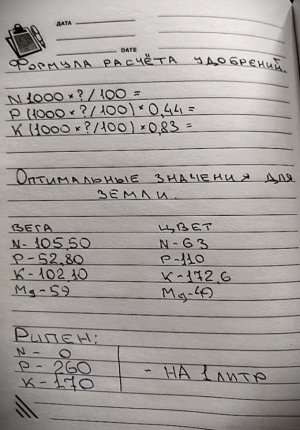 ДАТА
DATE
ФОРМУЛА РАСЧЁТА УДОБРЕНИЙ.
N 1000 × ? / 100 =
P (1000 × ? / 100) × 0,44 =
K (1000 × ? / 100) × 0,83 =
ОПТИМАЛЬНЫЕ ЗНАЧЕНИЯ ДЛЯ
ЗЕМЛИ.
ВЕГА ЦВЕТ
N - 105,50 N - 63
P - 52,80 P - 110
K - 102,10 K - 172,6
Mg - 59 Mg - 40
РИПЕН:
N - 0
P - 260 - НА 1 ЛИТР
K - 170